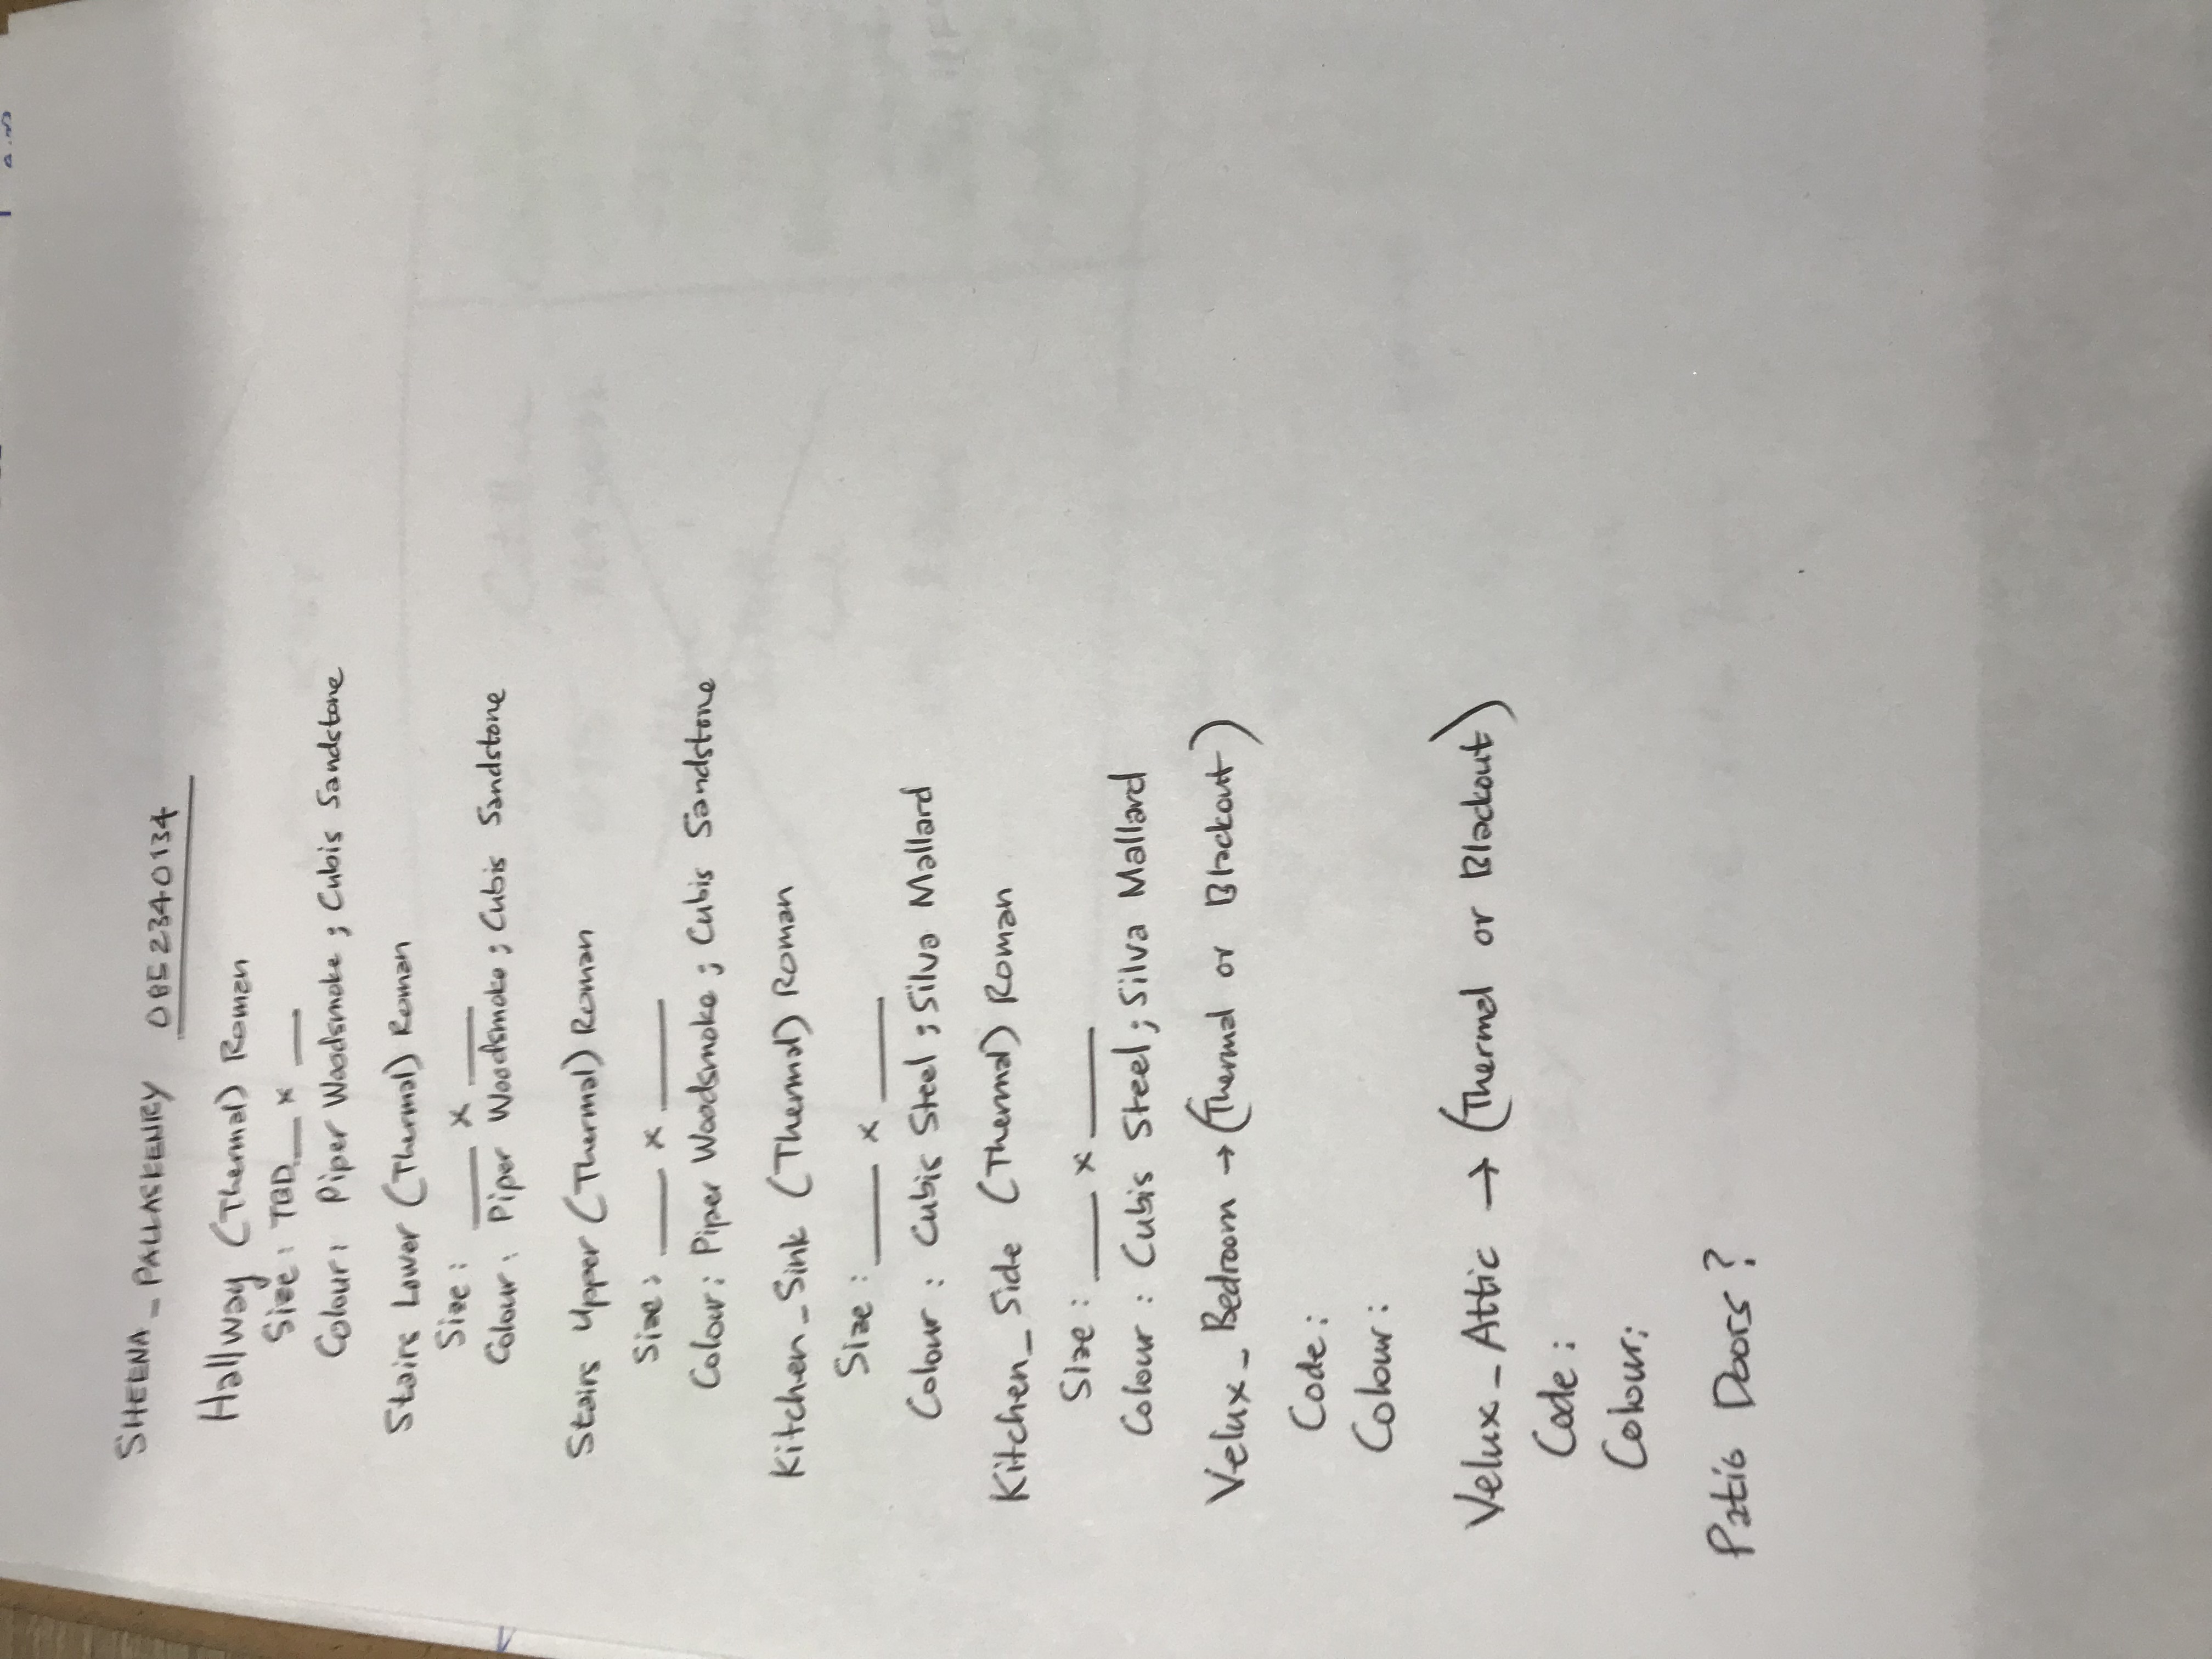 SHEENA_PALLASKENRY 0852340134
Hallway (Thermal) Roman
Size: TBD___ x ___
Colour: Piper Woodsmoke; Cubis Sandstone
Stairs Lower (Thermal) Roman
Size: ___ x ___
Colour: Piper Woodsmoke; Cubis Sandstone
Stairs Upper (Thermal) Roman
Size: ___ x ___
Colour: Piper Woodsmoke; Cubis Sandstone
Kitchen_Sink (Thermal) Roman
Size: ___ x ___
Colour: Cubis Steel; Silva Mallard
Kitchen_Side (Thermal) Roman
Size: ___ x ___
Colour: Cubis Steel; Silva Mallard
Velux_Bedroom → (Thermal or Blackout)
Code:
Colour:
Velux_Attic → (Thermal or Blackout)
Code:
Colour:
Patio Doors?